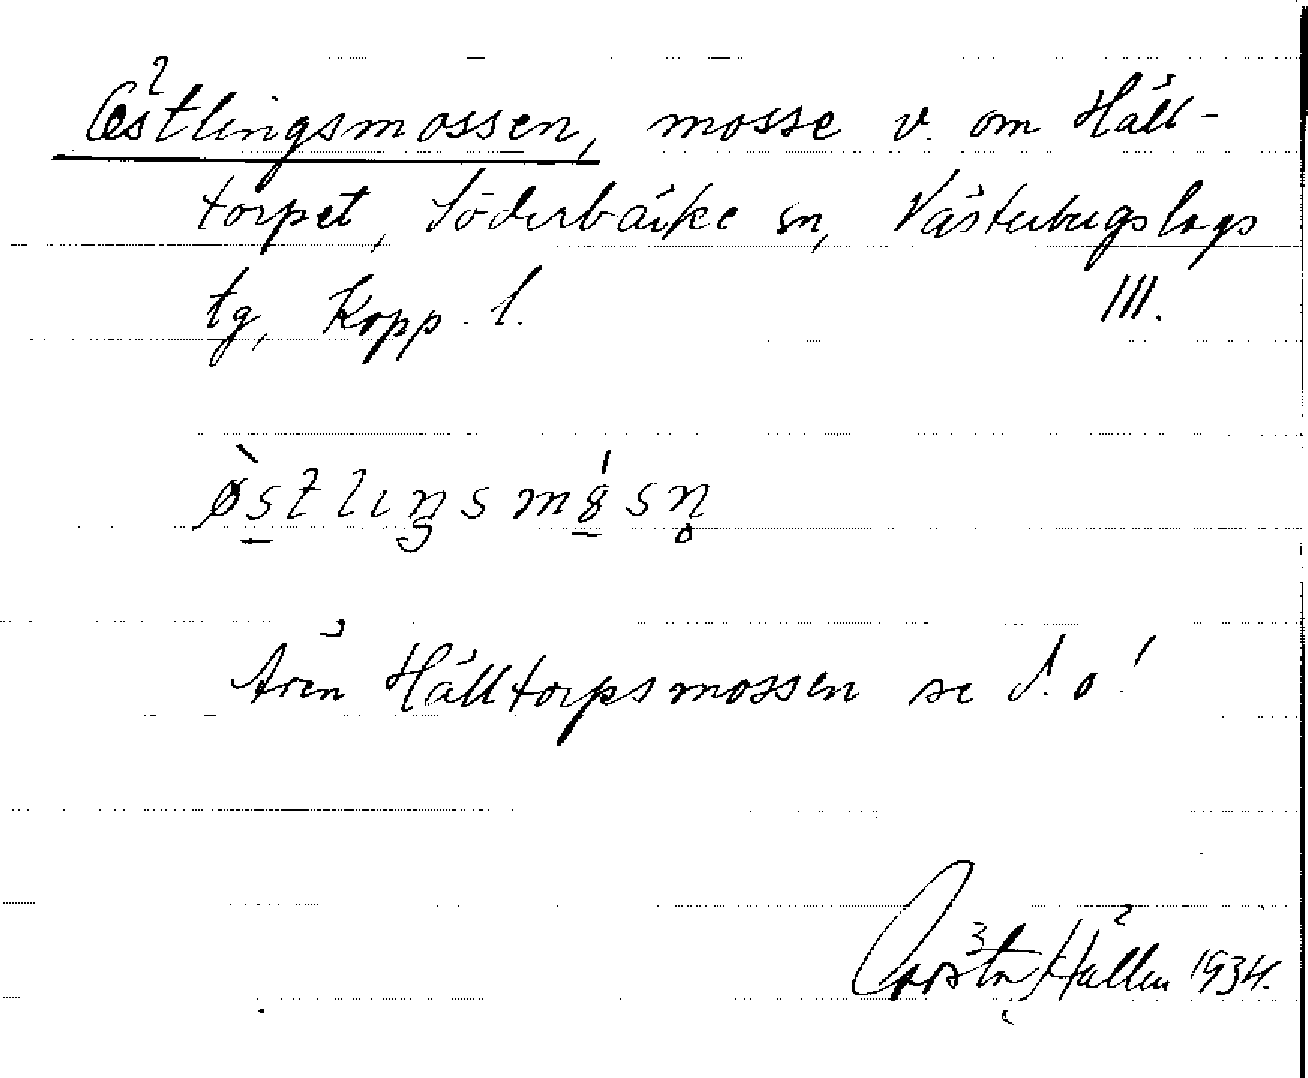 Östlingsmossen, mosse v. om Häll-
torpet, Söderbärke sn, Västerbergslags
tg, Kopp. l. III.
østlıŋsmɷsn̥
Även Hälltorpsmossen se d. o!
Gösta Hallen 1934.